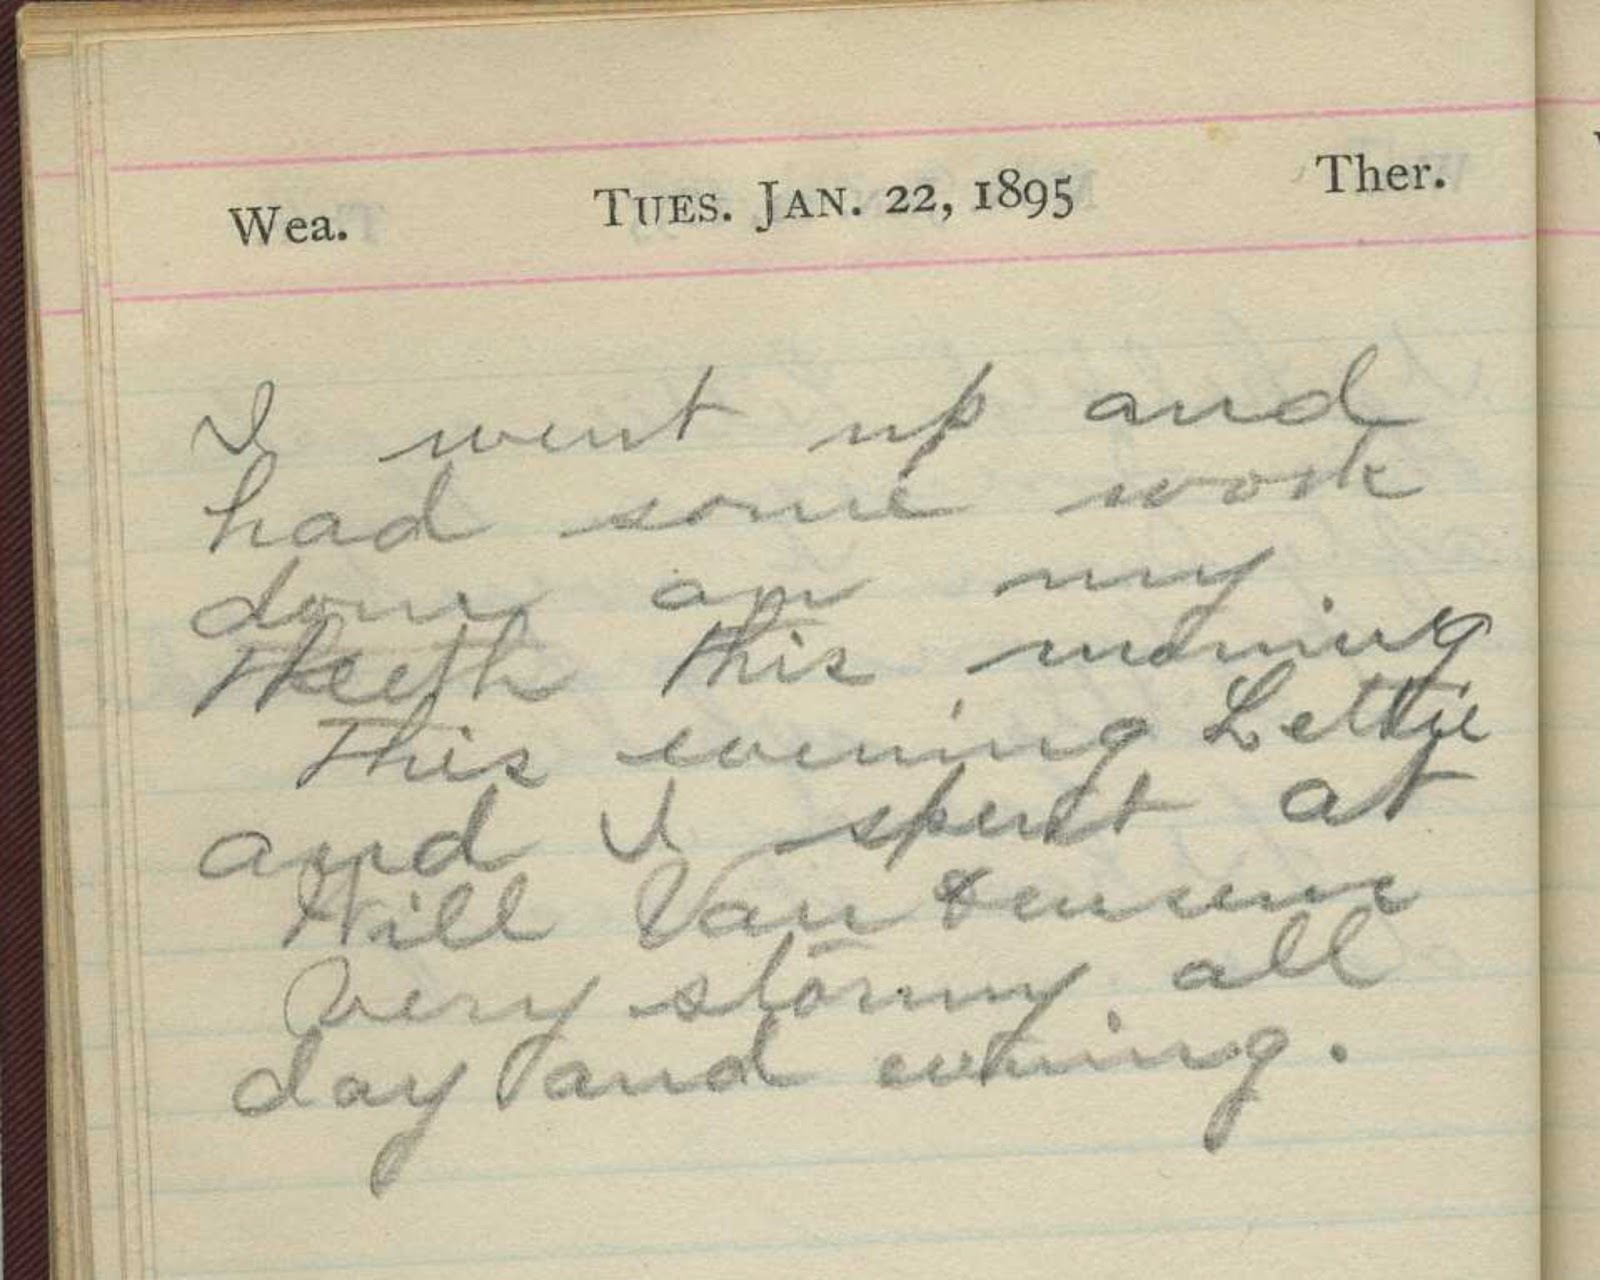 Wea. TUES. JAN. 22, 1895 Ther.
I went up and
had some work
done on my
theeth this morning
This evening Lettie
and I spent at
Will Van
Very stormy all
day and evening.